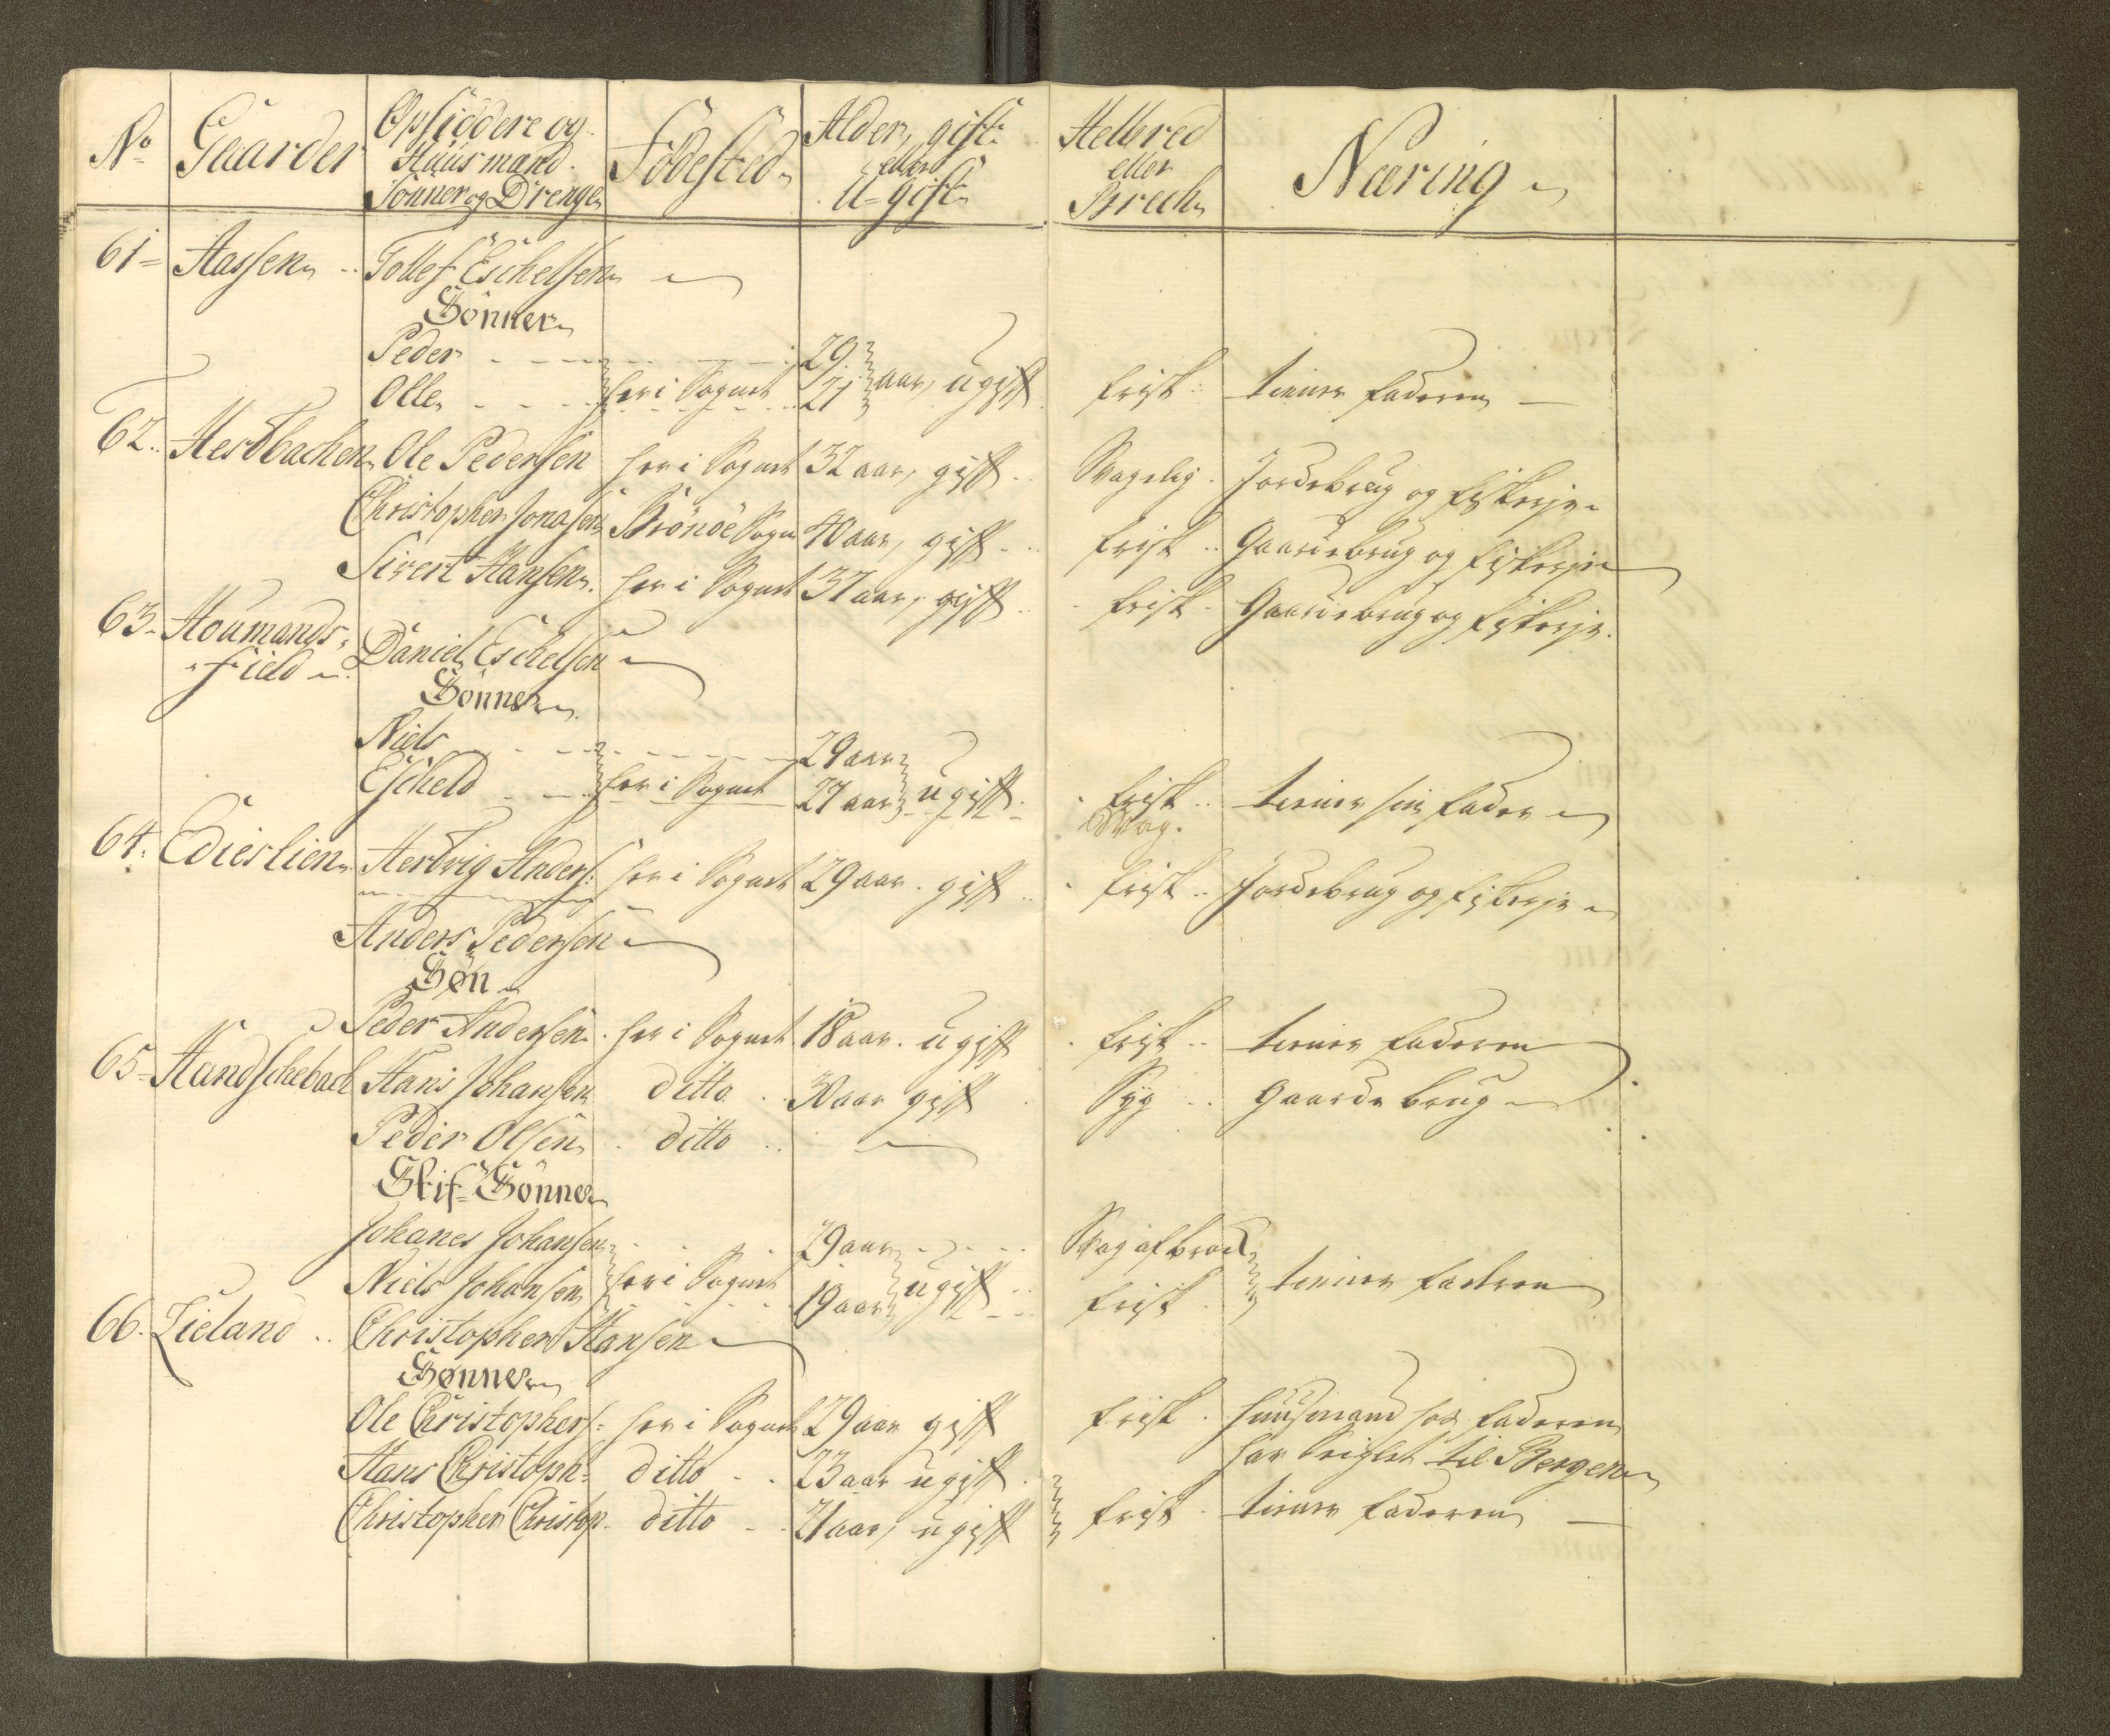 No Gaarder Opsiddere og Huusmænd Sönner og Drenge Födested Alder, gift eller U-gift Helbred eller Bræck Næring
61 Aassen Tollef Eschelsen
Sönner
Peder 29
Olle her i Sognet 21 aar, ugift frisk tiener faderen
62 Hestbachen Ole Pedersen her i Sognet 32 aar, gift Svagelig Jordebrug og fiskerje
Christopher Jonasen Brönöe Sogn 40 aar, gift frisk Gaardebrug og fiskerje
Sivert Hansen her i Sognet 37 aar, gift frisk Gaardebrug og fiskerje
63 Houmands-
field Daniel Eschelsen
Sönner
Niels 29 aar
Escheld her i Sognet 27 aar ugift frisk tiener sin fader
Svag
64 Edierlien Hertvig Anders: her i Sognet 29 aar gift frisk Jordebrug og fiskerje
Anders Pedersen
Søn
Peder Andersen her i Sognet 18 aar ugift frisk tiener faderen
65 Handschebach Hans Johansen ditto 30 aar gift Syg Gaarde brug
Peder Olsen ditto
Stif-Sönner
Johanes Johansen 29 aar Svag af brock
Niels Johansen her i Sognet 19 aar ugift frisk tiener faderen
66 Lieland Christopher Hansen
Sønner
Ole Christophers: her i Sognet 29 aar gift frisk huusmand hos faderen
Hans Christoph: ditto 23 aar ugift har Seiglet til Bergen
Christopher Christop ditto 21 aar, ugift frisk tiener faderen